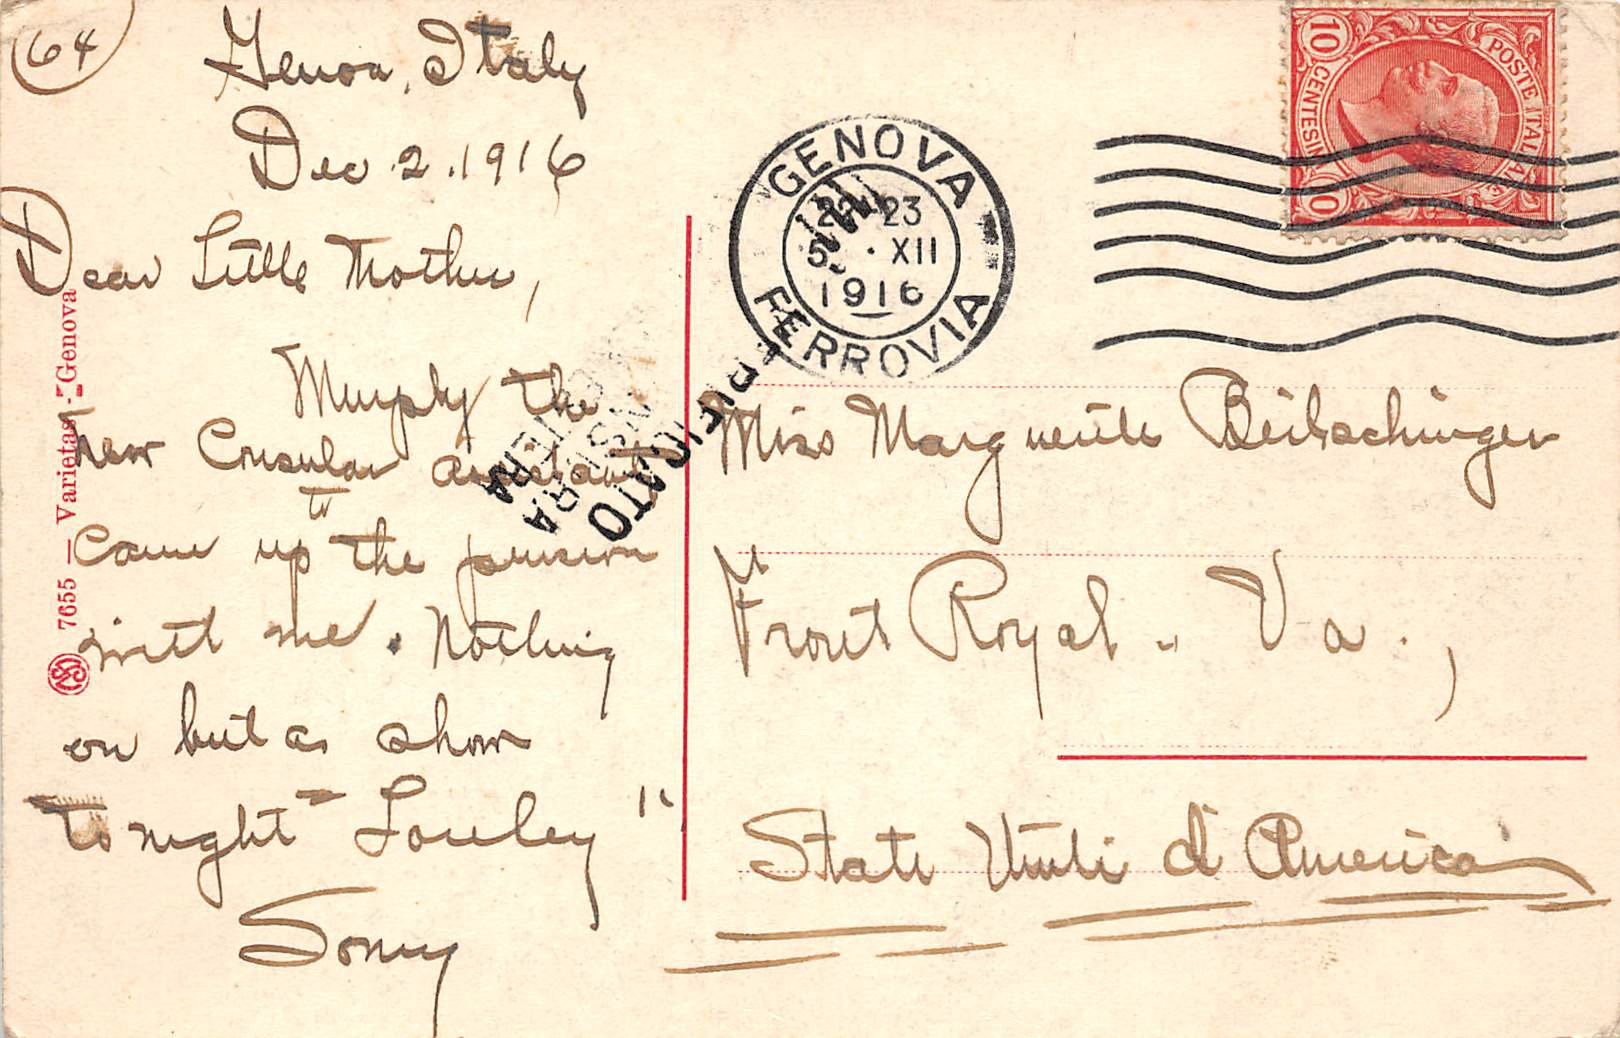 64
Genoa, Italy
Dec 2. 1916
Dear Little Mother,
Murphy the
new Consular assistant
came up to the pension
with me. Nothing
on but a show
to night "
Sonny
7655 — Varietas - Genova
GENOVA
23
XII
1916
FERROVIA
VERIFICATO
CENSURA
ESTERA
POSTE ITALIANE
10 CENTESIMI 10
Miss Marguerite Beitzchinger
Front Royal, Va.,
Stati Uniti d'America